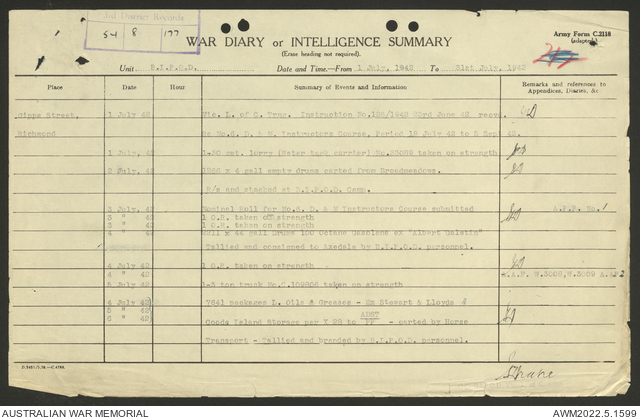 3rd District Records
54 8 177
WAR DIARY or INTELLIGENCE SUMMARY
(Erase heading not required).
Army Form C.2118
(adapted)
Unit B.I.P.O.D. Date and Time.—From 1 July, 1942 To 31st July, 1942
Place Date Hour Summary of Events and Information Remarks and references to Appendices, Diaries, &c.
Gipps Street, 1 July 42 Vic. L. of C. Tps. Instruction No.125/1942 23rd June 42 recvd.
Richmond Re No.6. D. & M. Instructors Course, Period 18 July 42 to 5 Sept 42.
1 July, 42 1-30 cwt. lorry (Water tank carrier) No.23082 taken on strength
2 July, 42 1256 x 4 gall empty drums carted from Broadmeadows.
R/s and stacked at B.I.P.O.D. Camp.
3 July 42 Nominal Roll for No.6. D. & M Instructors Course submitted A.F.P. No. 1
3 " 42 1 O.R. taken off strength
3 " 42 1 O.R. taken on strength
4 " 42 x 44 gall Drums 100 Octane Gasolene ex "Albert
Tallied and consigned to Axedale by B.I.P.O.D. personnel.
4 July 42 1 O.R. taken on strength
4 " 42 W.3008,W.3009
5 July 42 1-3 ton truck No.C.109806 taken on strength
4 July 42 7641 packages L. Oils & Greases - Ex Stewart & Lloyds &
5 " 42 Coode Island Storage per X 29 to carted by Horse
6 " 42 Transport - Tallied and branded by B.I.P.O.D. personnel.
AUSTRALIAN WAR MEMORIAL
AWM2022.5.1599